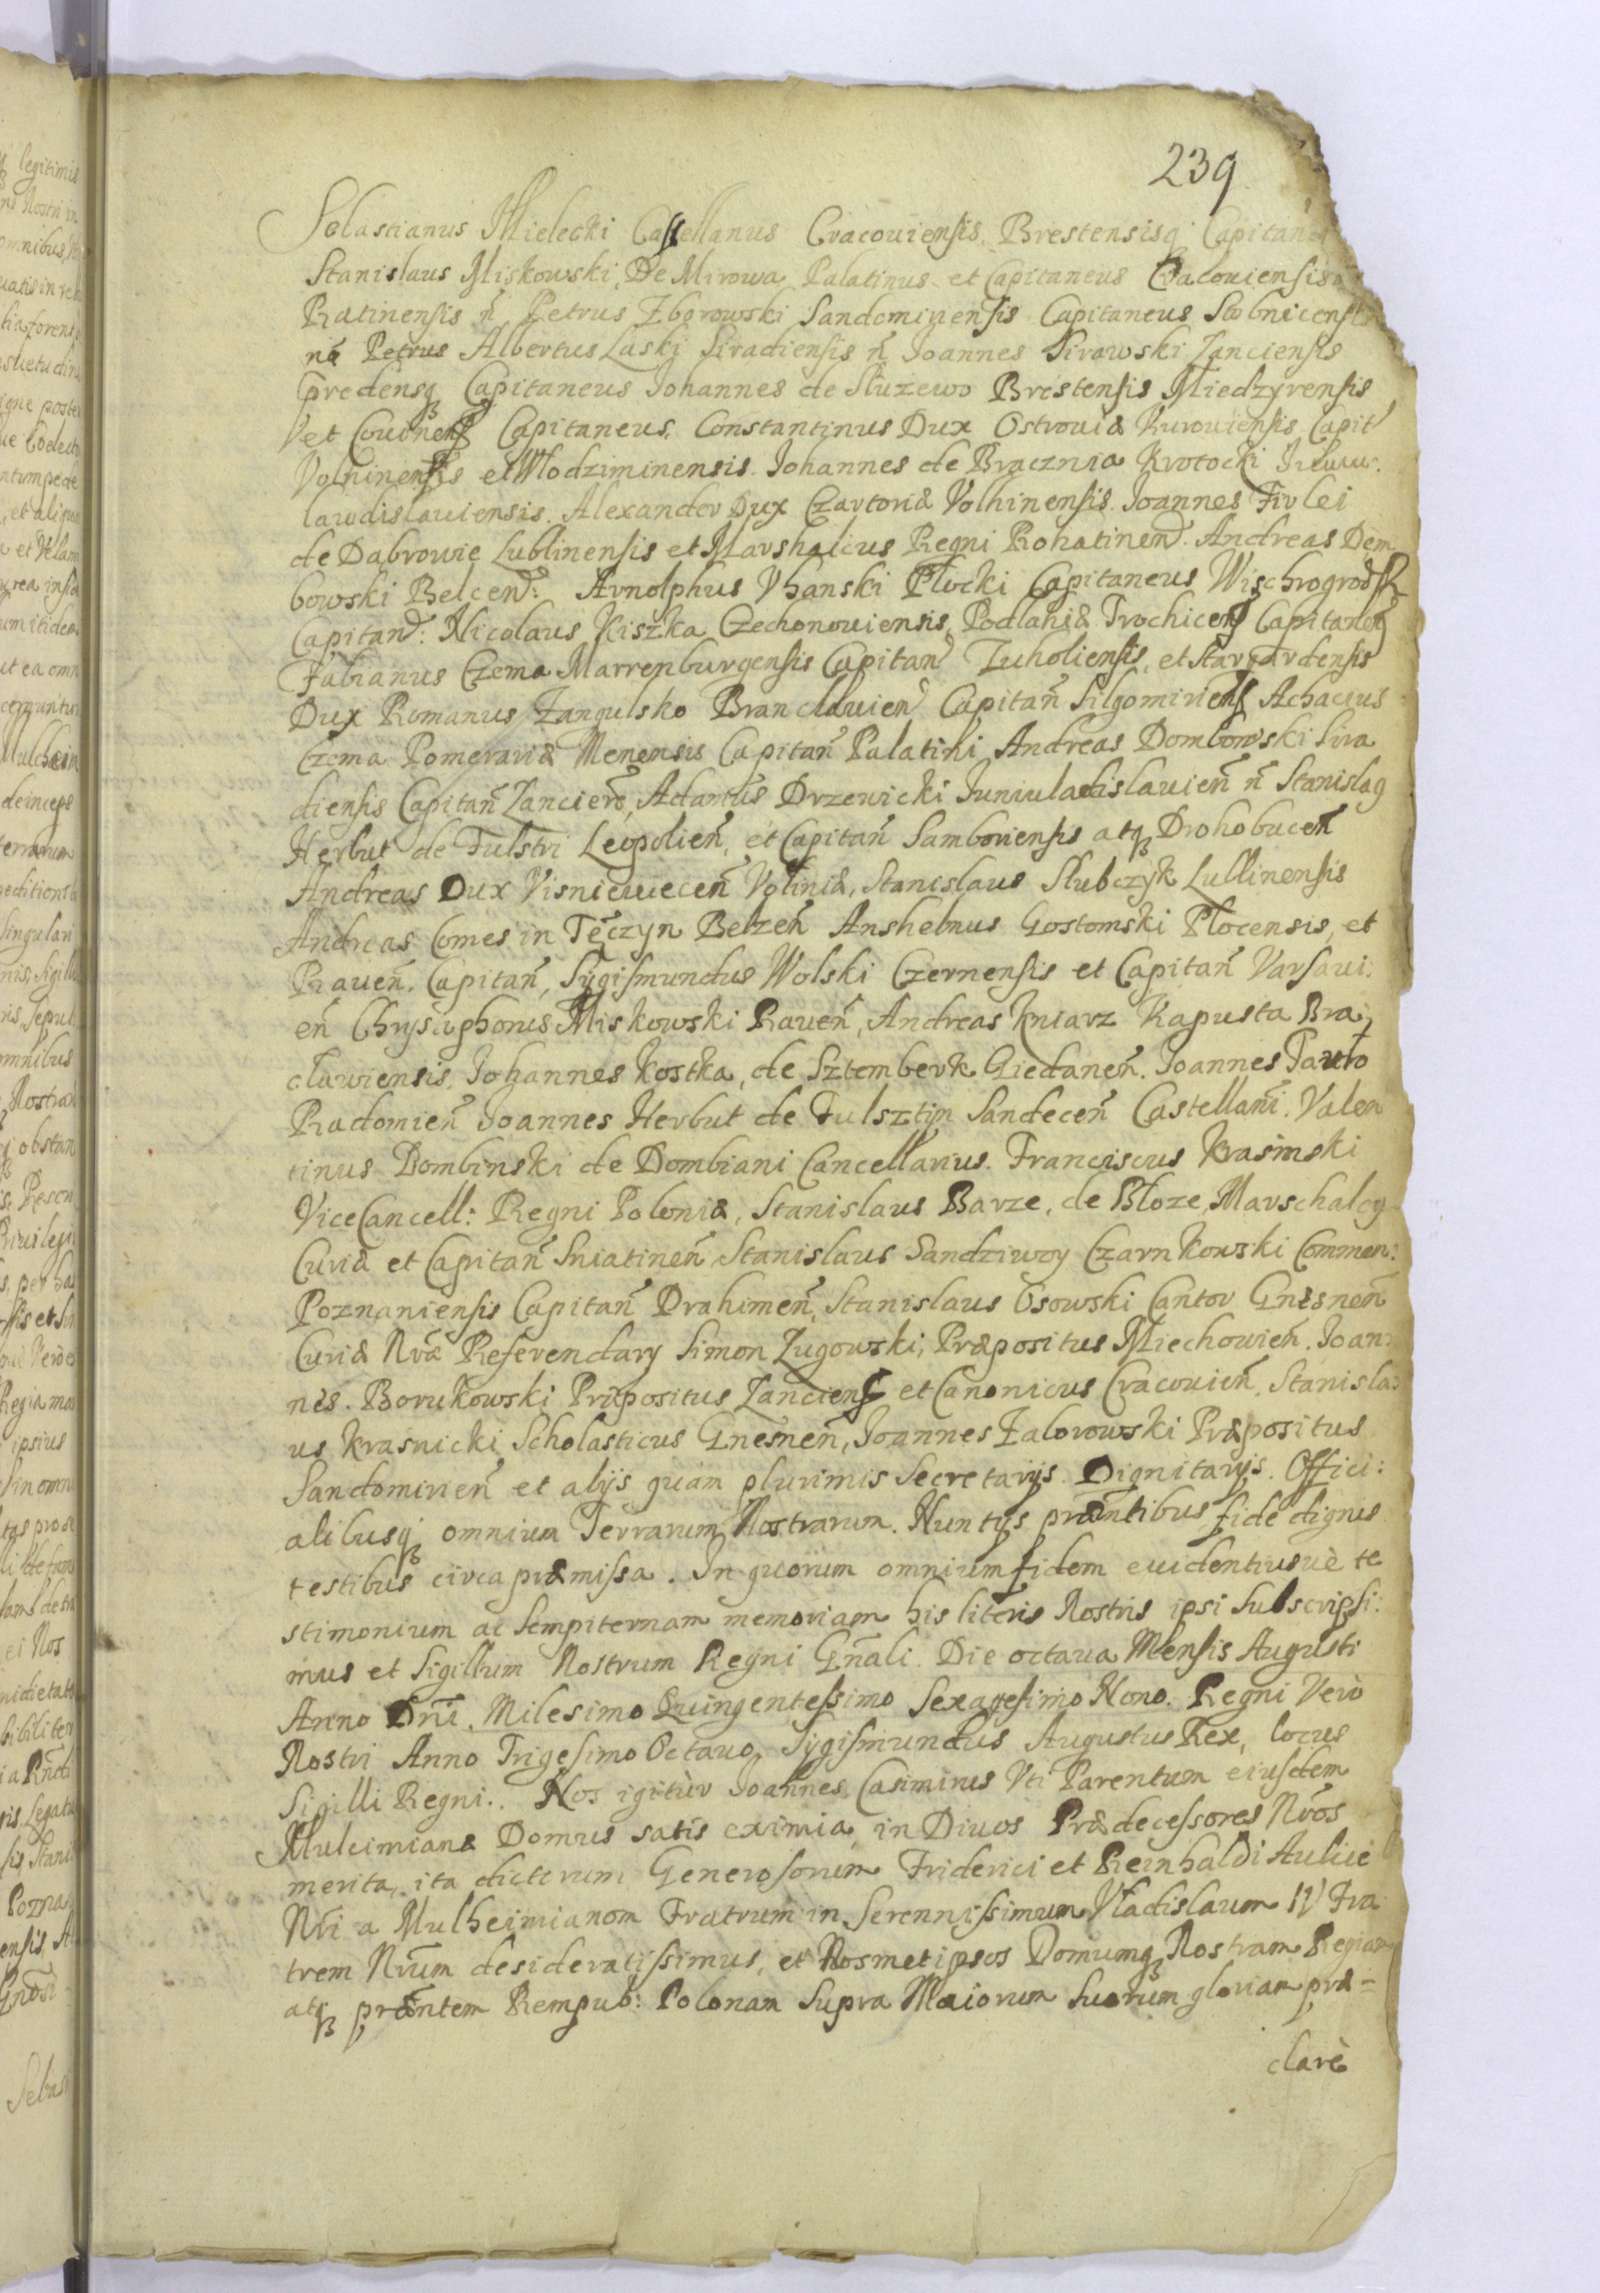 239
Sebastianus Mielecki Castellanus Cracouiensis, Brestensisq Capitane
Stanislaus Miskowski, De Mirowa Palatinus et Capitaneus Cracouiensis
Ratinensis n̄ Petrus Zborowski Sandomiriensis Capitaneus Stobnicensis
Petrus Albertus Laski Siradiensis n̄ Joannes Sirawski Lanciensis
predensq Capitaneus Johannes de Służewo Brestensis Miedzyrensis
et Couinens Capitaneus, Constantinus Dux Ostrouiæ Kurouiensis Capit
Volninensis et Wlodziminensis. Johannes de Bracznia Krotocki
lawdislauiensis. Alexander Dux Czartoriæ Volhinensis. Joannes Firlei
de Dabrowie Lublinensis et Marshalcus Regni Rohatinen. Andreas Dem
bowski Belcen: Arnolphus Vhanski Plocki Capitaneus Wischrogrods
Capitan: Nicolaus Kiszka Czechonouiensis, Podlahiæ Trochicens Capitanen
Fabianus Czema Marrenburgensis Capitan Tuholiensis, et Stargardensis
Dux Romanus Zangulsko Branclauien Capitan̄ Silgominens Achacius
Czema Pomeraniæ Menensis Capitan̄ Palatini Andreas Dombowski Sira
diensis Capitan̄ Lancien̄, Adamus Drzewicki Juniuladislauien̄ n̄ Stanislaq
Herbut de Fulstri Leopolien̄, et Capitan̄ Samboriensis atq Drohobucen̄
Andreas Dux Visniewecen̄ Voliniæ, Stanislaus Slubczyk Lullinensis
Andreas Comes in Tęczyn Belzen̄ Anshelmus Gostomski Plocensis, et
Rauen̄. Capitan̄, Sygismundus Wolski Czernensis et Capitan̄ Varsaui:
en̄ Chrysiphorus Miskowski Rauen̄, Andreas kniarz Kapusta Bra,
clawiensis. Johannes Kostka, de Sztemberk Giedanen̄. Joannes Tarlo
Radomien̄ Joannes Herbut de Fulsztÿn Sandecen̄ Castellani. Valen
tinus Dombinski de Dombiani Cancellarius. Franciscus Krasinski
ViceCancell: Regni Poloniæ, Stanislaus Barze, de Bloze, Marschalcq
Curiæ et Capitan̄ Sniatinen̄, Stanislaus Sandziwoy Czarnkowski Commen:
Poznaniensis Capitan̄ Drahimen̄, Stanislaus Osowski Cantor Gnesnen̄
Curiæ Nræ Referendary Simon Lugowski, Præpositus Miechouien̄. Joan:
nes. Borukowski Præpositus Lanciens et Canonicus Cracouien̄, Stanisla:
us Krasnicki Scholasticus Gnesnen̄, Joannes Zaborowski Præpositus
Sandomirien̄ et alÿs quam plurimis Secretarÿs. Dignitarÿs. Offici:
alibusq omnium Terrarum Nostrarum. Nuntÿs præntibus fide dignis
testibus circa præmissa. In quorum omnium fidem euidentiusuè te
stimonium ac sempiternam memoriam his literis Nostris ipsi Subscripsi:
mus et Sigillum Nostrum Regni Gn̄ali. Die octaua Mensis Augusti
Anno Dn̄i. Milesimo Quingentessimo Sexagesimo Nono. Regni Verò
Nostri Anno Trigesimo Octauo, Sygismundus Augustus Rex, locus
Sigilli Regni:. Nos igitùr Joannes Casimirus Vti Parentum eiusdem
Mulcimianæ Domus satis eximia, in Diuos Prædecessores Nr̄os
merita, ita dictorum Generosorum Friderici et Reinhaldi Aulicè
Nr̄i a Mulheimianom Fratrum in Serennissimum Vladislaum IV Fra
trem Nr̄um desideratissimus, et Nosmetipsos Domumq Nostram Regiam
atq præntem Rempub: Polonam Supra Maiorum Suorum gloriam præ=
clarè